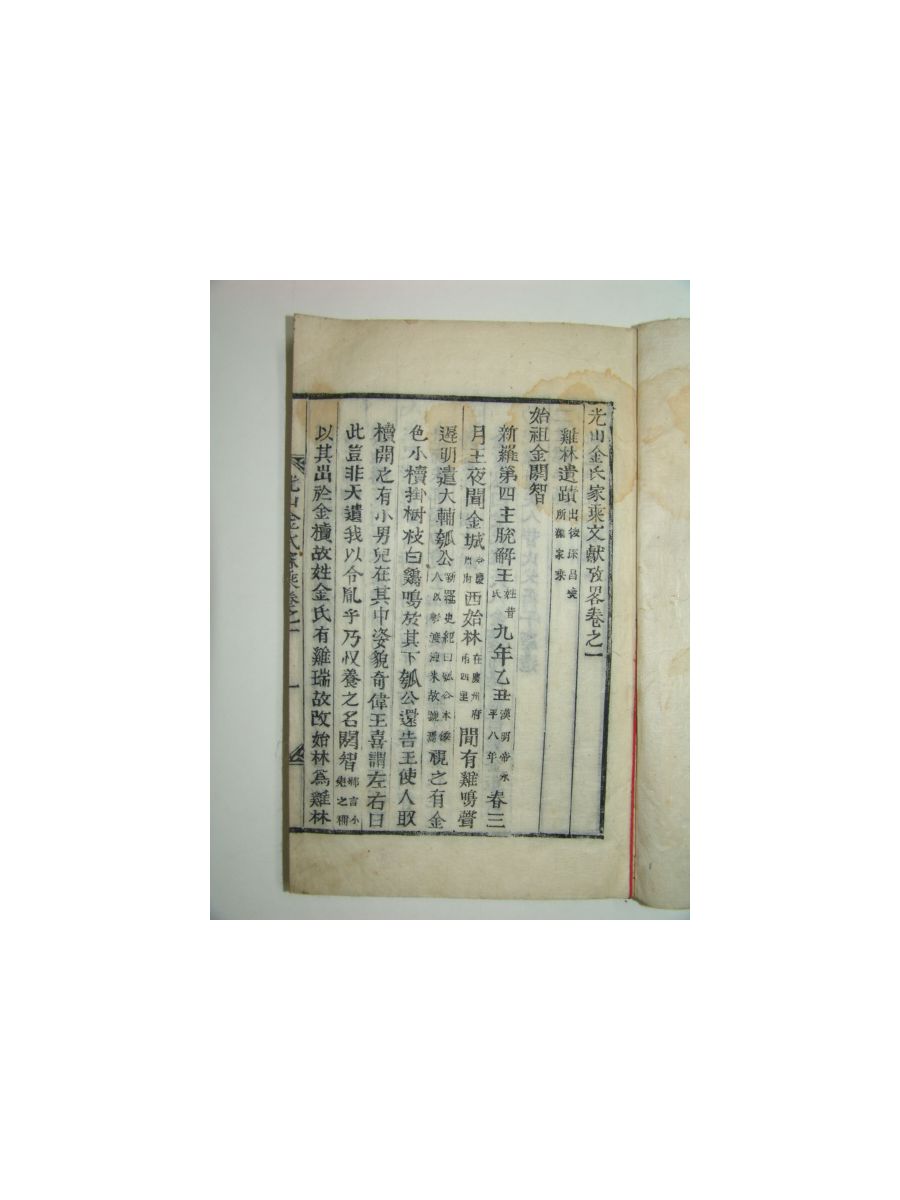 光山金氏家乘文獻攷畧卷之一
雞林遺蹟 出後孫昌 所編家乘
始祖金閼智
新羅第四主脫解王 姓昔氏 九年乙丑 漢明帝永平八年 春三
月王夜聞金城 西始林 在慶州府南四里 間有雞鳴聲
遲明遣大輔瓠公 視之有金
色小櫝掛樹枝白鷄鳴於其下瓠公還告王使人取
櫝開之有小男兒在其中姿貌奇偉王喜謂左右曰
此豈非天遺我以令胤乎乃收養之名閼智 鄕言小兒之稱
以其出於金櫝故姓金氏有雞瑞故改始林爲雞林
光山金氏家乘卷之一 一